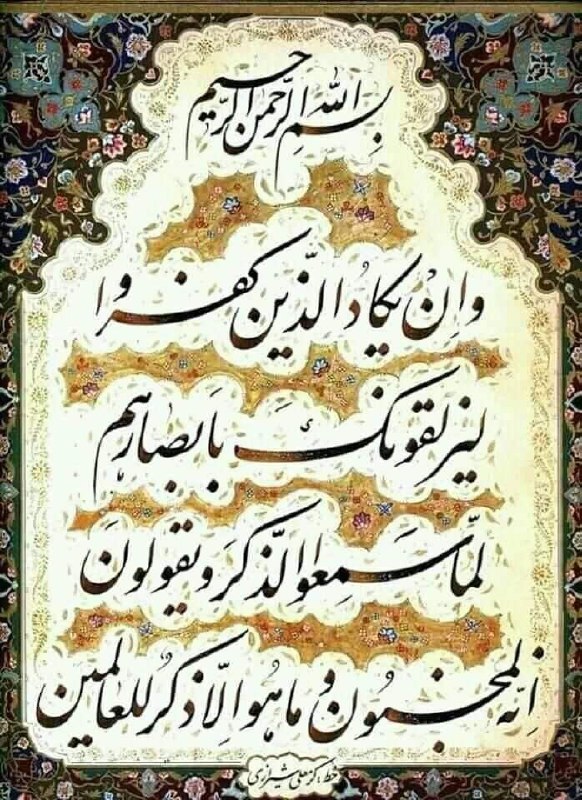 بسم الله الرحمن الرحیم
وَاِنْ یکادُ الَّذین کفروا
لیزلقونکَ بابصارهم
لمّا سَمِعوا الذّکرَ و یقولونَ
اِنّه لمجنون و ما هُوَ الّا ذکرٌ للعالمین
خط: